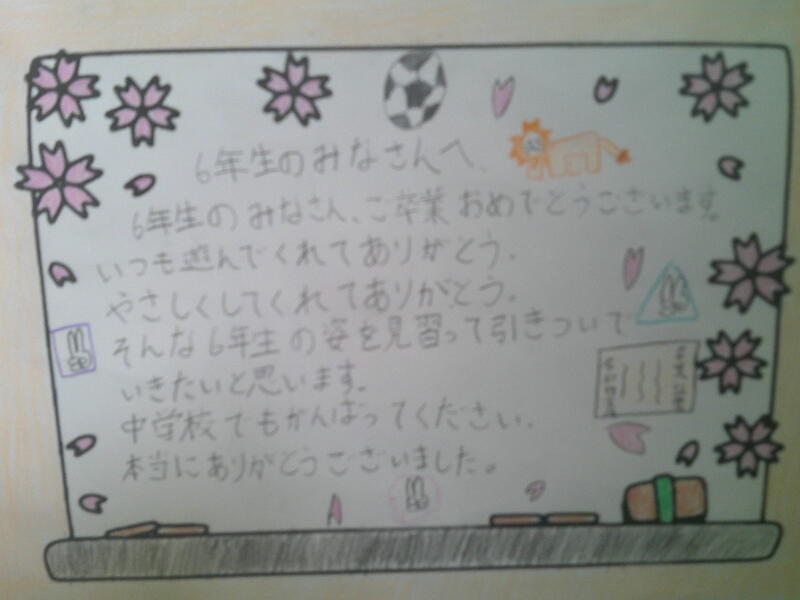 6年生のみなさんへ、
6年生のみなさん、ご卒業おめでとうございます。
いつも遊んでくれてありがとう。
やさしくしてくれてありがとう。
そんな6年生の姿を見習って引きついで
いきたいと思います。
中学校でもがんばってください。
本当にありがとうございました。